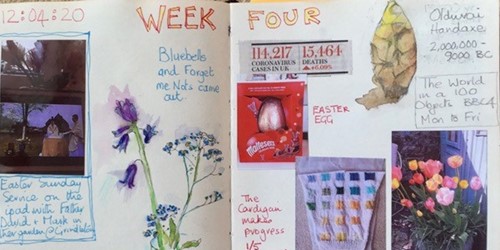 12:04:20
WEEK
Bluebells
and Forget
me Nots came
out
Easter Sunday
Service on the
ipad with Father
David + Mark in
their garden @
FOUR
114,217 15,464
CORONAVIRUS DEATHS
CASES IN UK +6.09%
Maltesers
EASTER
EGG
The
Cardigan
makes
progress
1/5
Olduvai
Handaxe
2,000,000 -
9000 BC
The World
in a 100
Objects BBC4
Mon to Fri